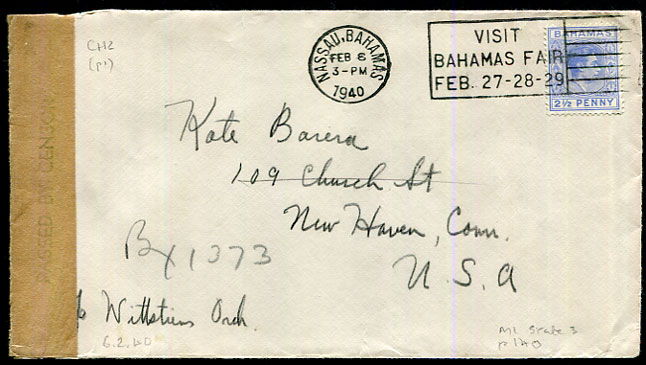 CH2
(p')
NASSAU, BAHAMAS
FEB 6
3-PM
1940
VISIT
BAHAMAS FAIR
FEB. 27-28-29
BAHAMAS
2½ PENNY
PASSED BY CENSOR
Kate Barera
109 Church St
New Haven, Conn.
U.S.A
Bx 1373
Wittstein Orch.
6.2.40